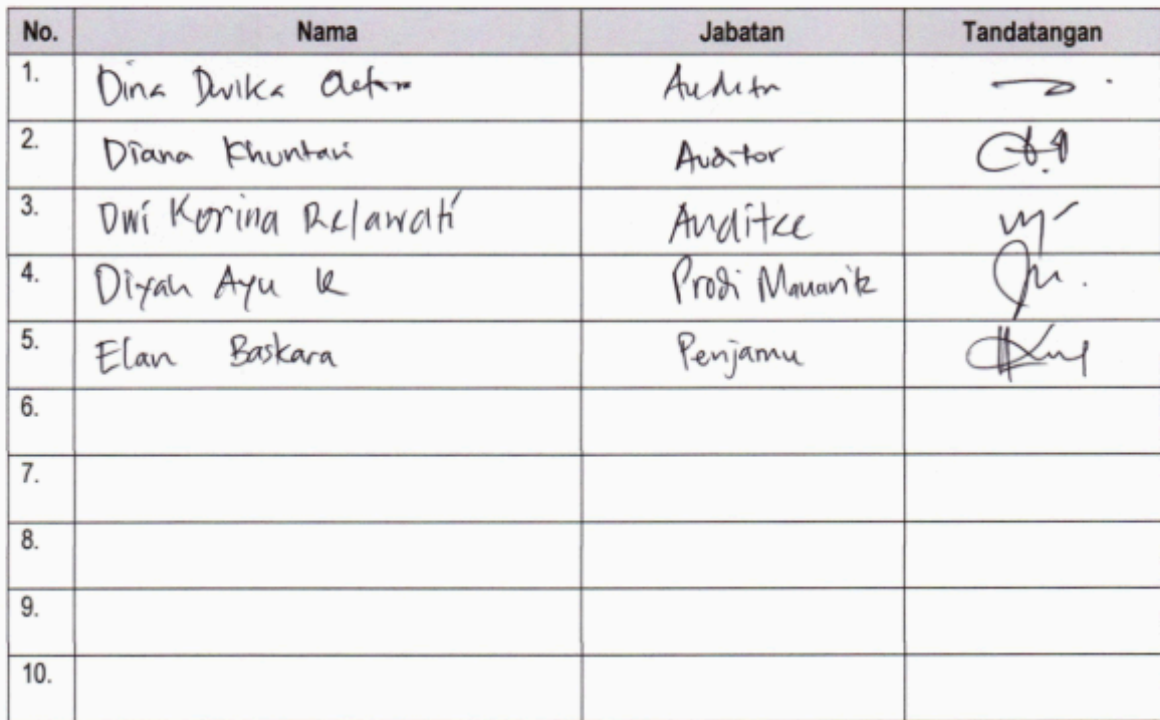 No. Nama Jabatan Tandatangan
1. Dina Auditor
2. Diana Khuntari Auditor
3. Dwi Korina Relawati Auditee
4. Diyah Ayu K Prodi
5. Elan Baskara Penjamu
6.
7.
8.
9.
10.